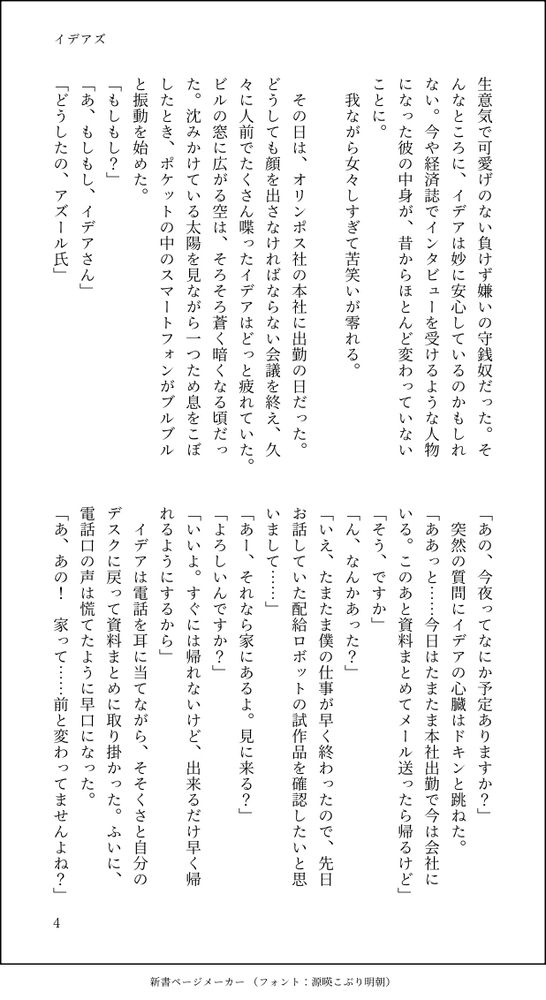 イデアズ
生意気で可愛げのない負けず嫌いの守銭奴だった。そ
んなところに、イデアは妙に安心しているのかもしれ
ない。今や経済誌でインタビューを受けるような人物
になった彼の中身が、昔からほとんど変わっていない
ことに。
我ながら女々しすぎて苦笑いが零れる。
その日は、オリンポス社の本社に出勤の日だった。
どうしても顔を出さなければならない会議を終え、久
々に人前でたくさん喋ったイデアはどっと疲れていた。
ビルの窓に広がる空は、そろそろ蒼く暗くなる頃だっ
た。沈みかけている太陽を見ながら一つため息をこぼ
したとき、ポケットの中のスマートフォンがブルブル
と振動を始めた。
「もしもし？」
「あ、もしもし、イデアさん」
「どうしたの、アズール氏」
「あの、今夜ってなにか予定ありますか？」
突然の質問にイデアの心臓はドキンと跳ねた。
「ああっと……今日はたまたま本社出勤で今は会社に
いる。このあと資料まとめてメール送ったら帰るけど」
「そう、ですか」
「ん、なんかあった？」
「いえ、たまたま僕の仕事が早く終わったので、先日
お話していた配給ロボットの試作品を確認したいと思
いまして……」
「あー、それなら家にあるよ。見に来る？」
「よろしいんですか？」
「いいよ。すぐには帰れないけど、出来るだけ早く帰
れるようにするから」
イデアは電話を耳に当てながら、そそくさと自分の
デスクに戻って資料まとめに取り掛かった。ふいに、
電話口の声は慌てたように早口になった。
「あ、あの！　家って……前と変わってませんよね？」
4
新書ページメーカー（フォント：源暎こぶり明朝）